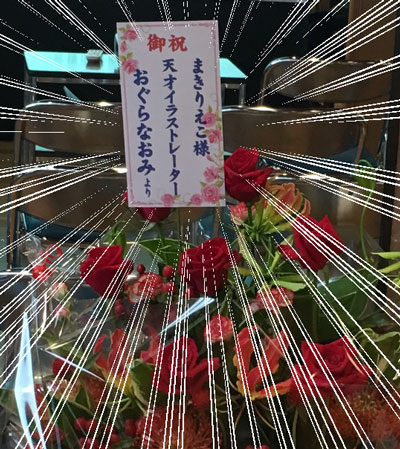 御祝
まきりえこ様
天才イラストレーター
おぐらなおみより